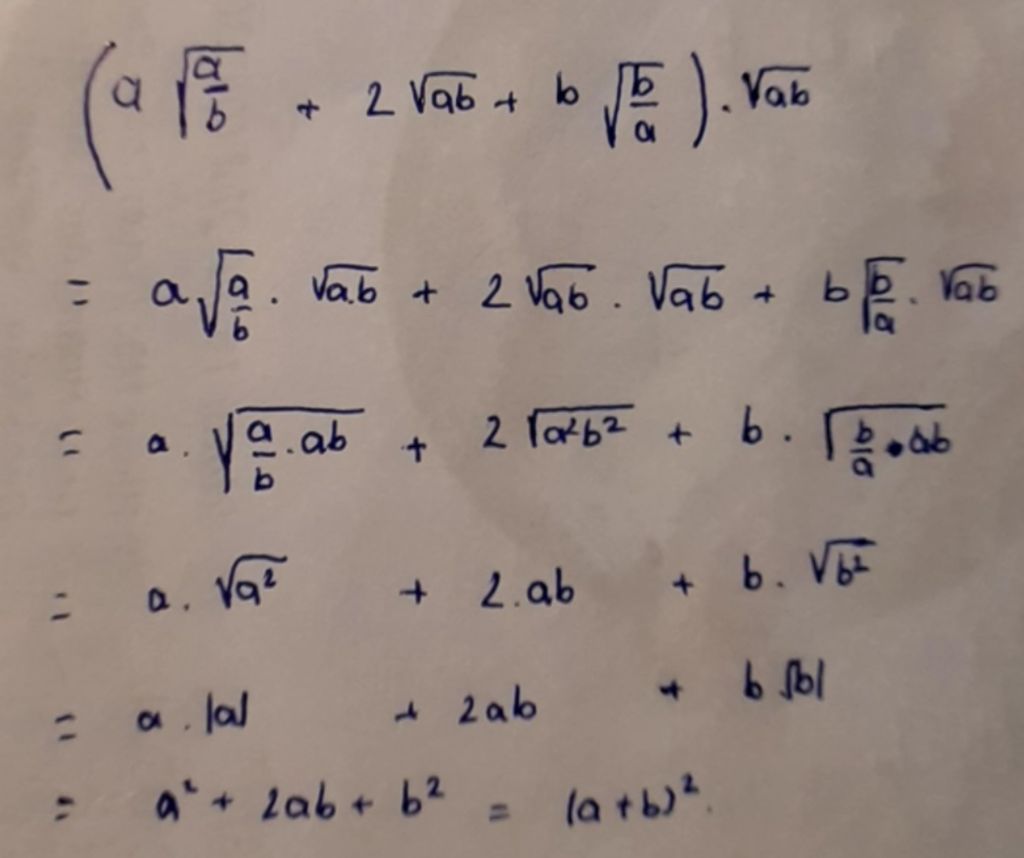 (a √(a/b) + 2 √ab + b √(b/a)) . √ab
= a √(a/b) . √a.b + 2 √ab . √ab + b √(b/a) . √ab
= a . √(a/b . ab) + 2 √a²b² + b . √(b/a . ab)
= a . √a² + 2 . ab + b . √b²
= a . |a| + 2ab + b |b|
= a² + 2ab + b² = (a + b)².